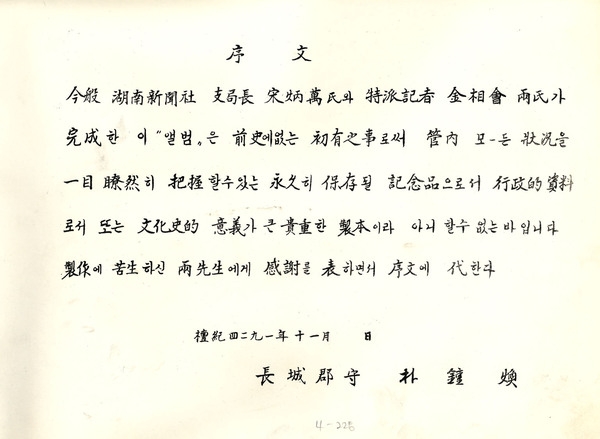 序 文
今般 湖南新聞社 支局長 宋炳萬氏와 特派記者 金相會 兩氏가
完成한 이 "앨범"은 前史에없는 初有之事로써 管内 모-든 狀况을
一目 瞭然히 把握할수있는 永久히 保存될 記念品으로서 行政的資料
로서 또는 文化史的 意義가큰貴重한 製本이라 아니 할수 없는바입니다
製作에 苦生하신 兩先生에게 感謝를 表하면서 序文에 代한다
檀紀四二九一年十一月 日
長城郡守 朴鐘煥
4-225